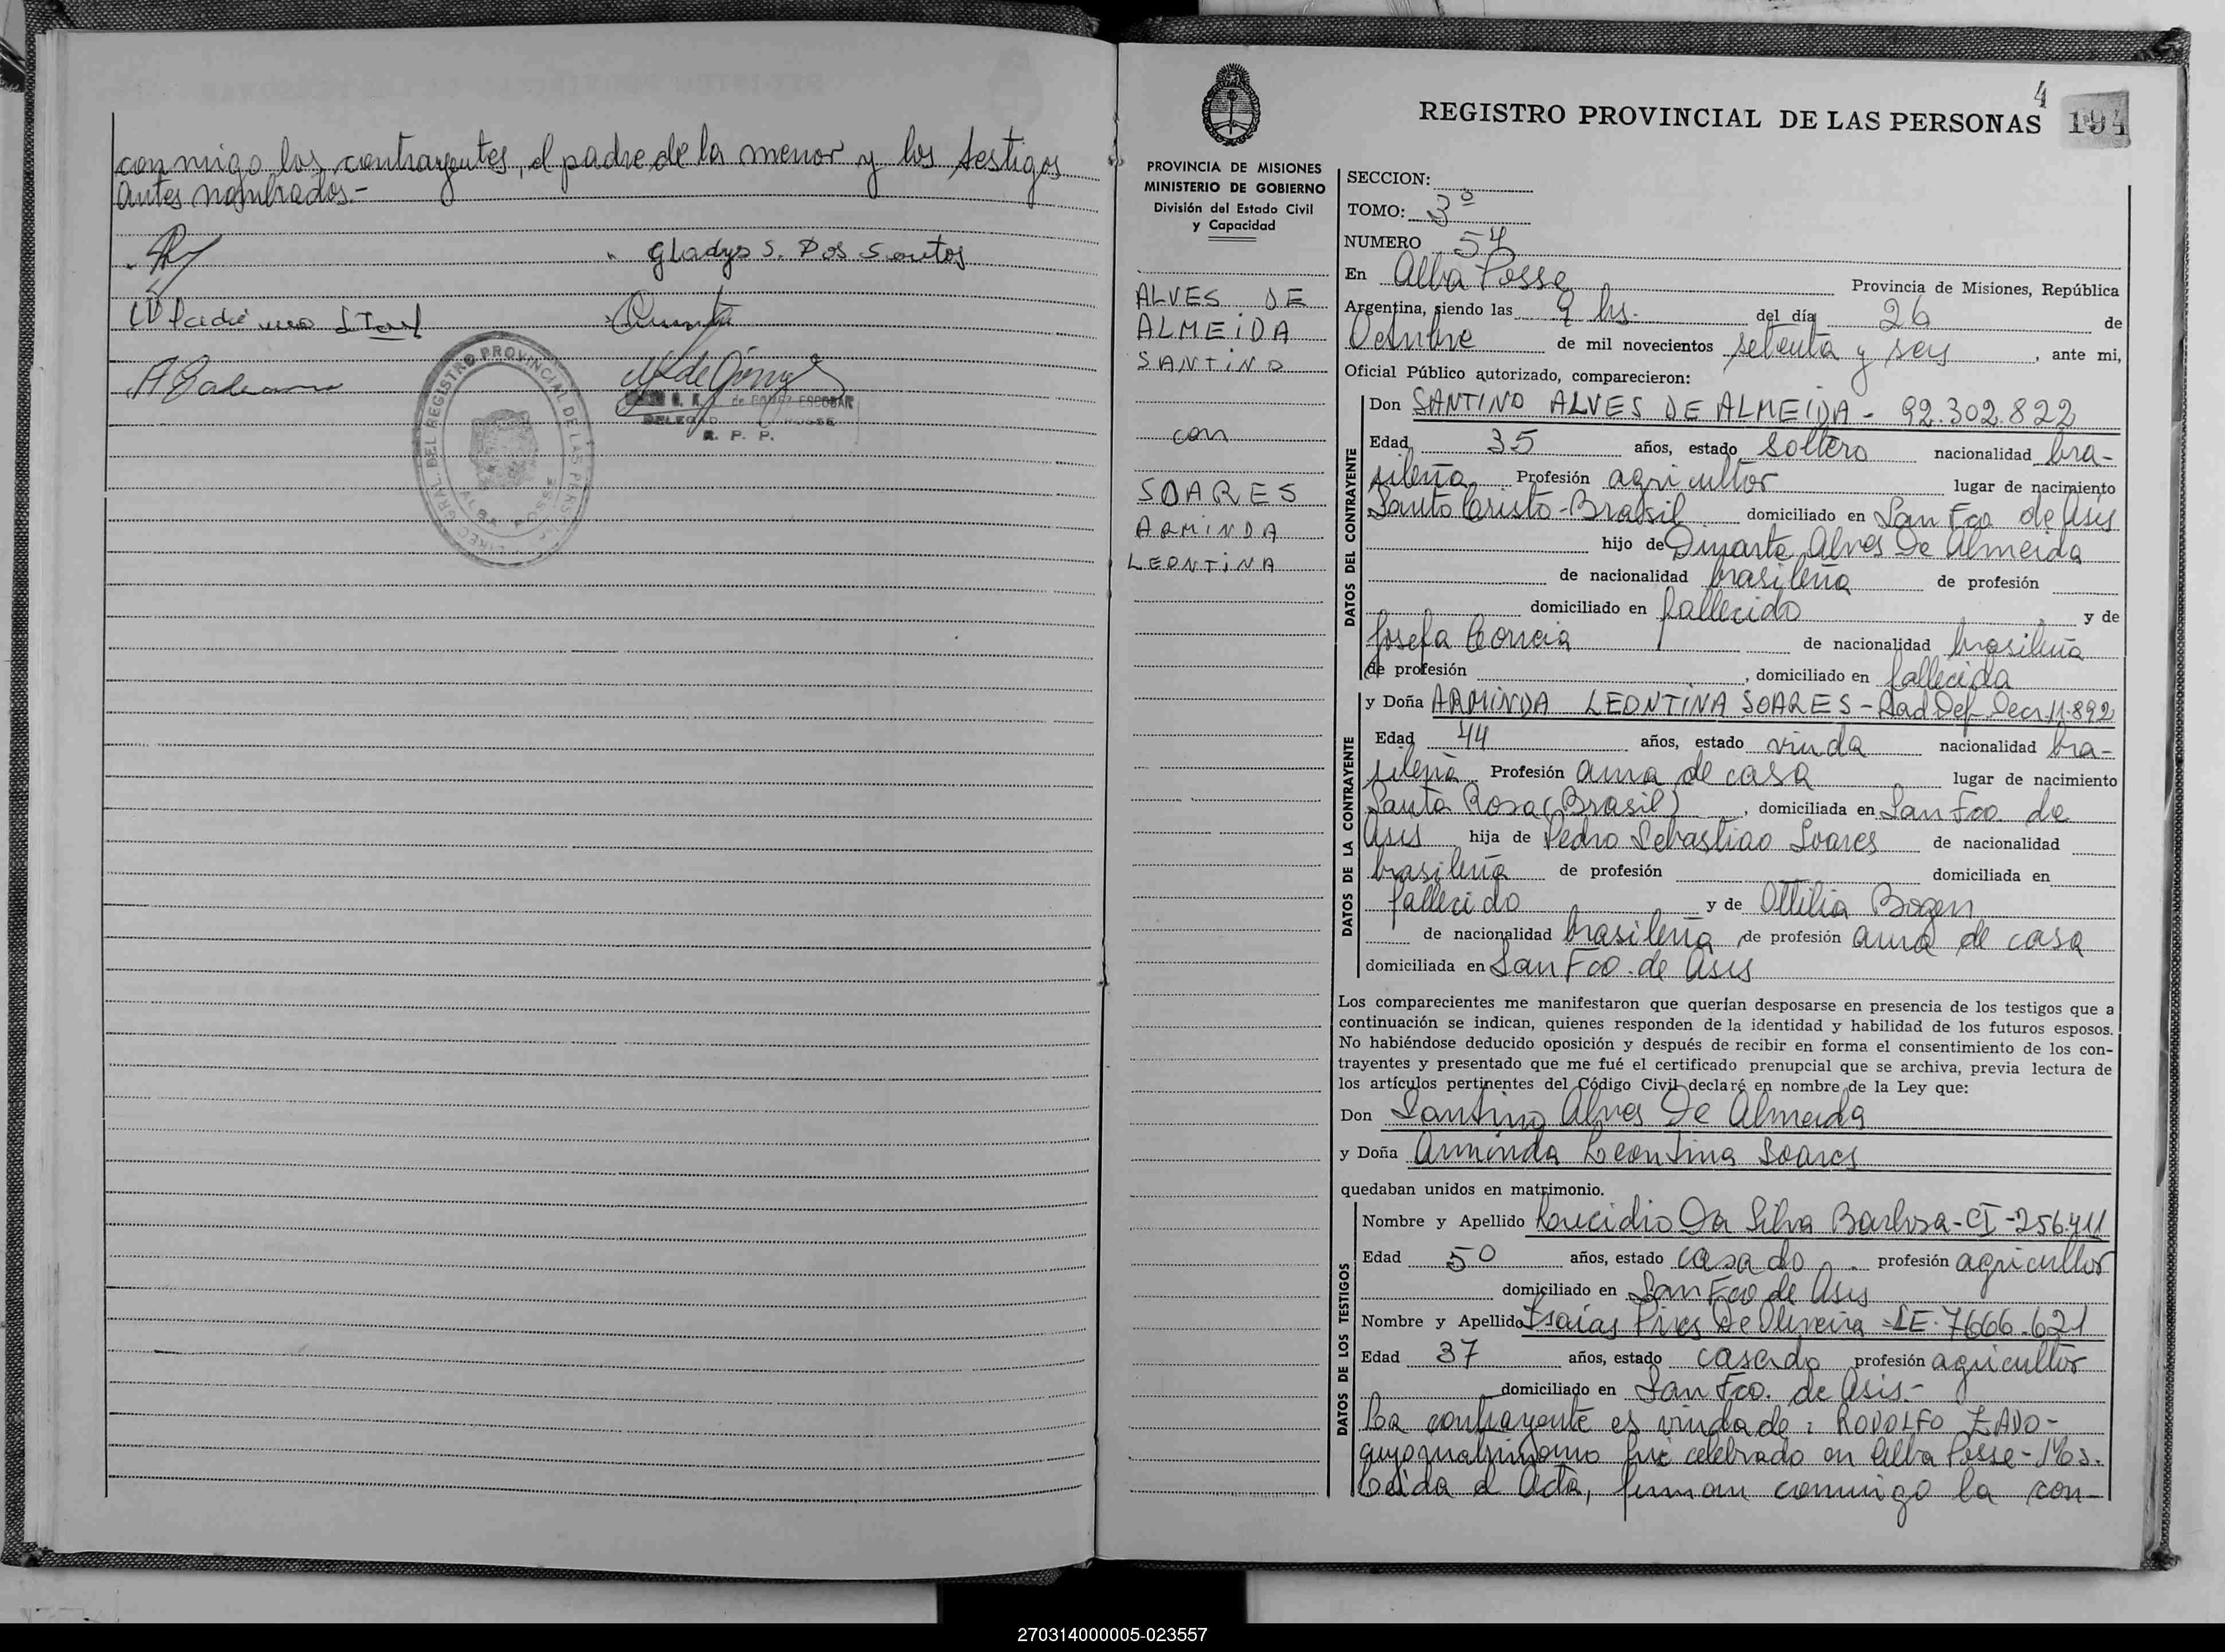 conmigo los contrayentes, el padre de la menor y los testigos
antes nombrados.-
Gladys S. Dos Santos
REGISTRO PROVINCIAL DE LAS PERSONAS
ALBA POSSE
de GOMEZ ESCOBAR
R. P. P.
4
REGISTRO PROVINCIAL DE LAS PERSONAS 194
PROVINCIA DE MISIONES
MINISTERIO DE GOBIERNO
División del Estado Civil
y Capacidad
ALVES DE
ALMEIDA
SANTINO
con
SOARES
ARMINDA
LEONTINA
SECCION:
TOMO: 3º
NUMERO 54
En Alba Posse Provincia de Misiones, República
Argentina, siendo las 9 hs. del día 26 de
Octubre de mil novecientos setenta y seis, ante mi,
Oficial Público autorizado, comparecieron:
DATOS DEL CONTRAYENTE
Don SANTINO ALVES DE ALMEIDA - 92.302.822
Edad 35 años, estado soltero nacionalidad bra-
sileña Profesión agricultor lugar de nacimiento
Santo Cristo-Brasil domiciliado en San Fco de Asis
hijo de Duarte Alves De Almeida
de nacionalidad brasileña de profesión
domiciliado en fallecido y de
Josefa Correia de nacionalidad brasileña
de profesión , domiciliado en fallecida
DATOS DE LA CONTRAYENTE
y Doña ARMINDA LEONTINA SOARES - Rad Def Decr 11.892
Edad 44 años, estado viuda nacionalidad bra-
sileña Profesión ama de casa lugar de nacimiento
Santa Rosa (Brasil), domiciliada en San Fco de
Asis hija de Pedro Sebastiao Soares de nacionalidad
brasileña de profesión domiciliada en
fallecido y de Ottilia Bogen
de nacionalidad brasileña, de profesión ama de casa
domiciliada en San Fco. de Asis
Los comparecientes me manifestaron que querían desposarse en presencia de los testigos que a
continuación se indican, quienes responden de la identidad y habilidad de los futuros esposos.
No habiéndose deducido oposición y después de recibir en forma el consentimiento de los con-
trayentes y presentado que me fué el certificado prenupcial que se archiva, previa lectura de
los artículos pertinentes del Código Civil declaré en nombre de la Ley que:
Don Santino Alves De Almeida
y Doña Arminda Leontina Soares
quedaban unidos en matrimonio.
DATOS DE LOS TESTIGOS
Nombre y Apellido Lucidio Da Silva Barbosa-CI-256.411
Edad 50 años, estado casado profesión agricultor
domiciliado en San Fco de Asis
Nombre y Apellido Isaias Pires De Oliveira LE. 7666.621
Edad 37 años, estado casado profesión agricultor
domiciliado en San Fco. de Asis-
La contrayente es viuda de: RODOLFO ZADO-
cuyo matrimonio fue celebrado en Alba Posse-Mos.
Leida el Acta, firman conmigo la con-
270314000005-023557